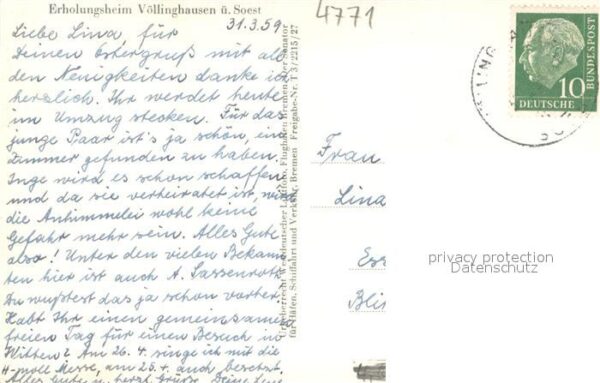 Erholungsheim Völlinghausen ü. Soest
4771
31.3.59
Liebe Lina, für
Deinen Ostergruß mit all
den Neuigkeiten danke ich
herzlich. Ihr werdet heute
im Umzug stecken. Für das
junge Paar ist's ja schön, ein
Zimmer gefunden zu haben.
Inge wird es schon schaffen
und da sie verheiratet ist, wird
die Anhimmelei wohl keine
Gefahr mehr sein. Alles Gute
also! Unter den vielen Bekann-
ten hier ist auch A. Sassenroth
Du wußtest das ja schon vorher.
Habt Ihr einen gemeinsamen
freien Tag für einen Besuch in
Witten? Am 26.4. singe ich mit die
H-moll Messe, am 25.4. auch
Alles Gute u. herzl. Grüße. Deine
Urheberrecht Westdeutscher Luftfoto, Flughafen Bremen. Der Senator
für Häfen, Schiffahrt und Verkehr, Bremen Freigabe-Nr. T 3/2215/27
DEUTSCHE BUNDESPOST
10
Frau
Lina
Ess
privacy protection
Datenschutz